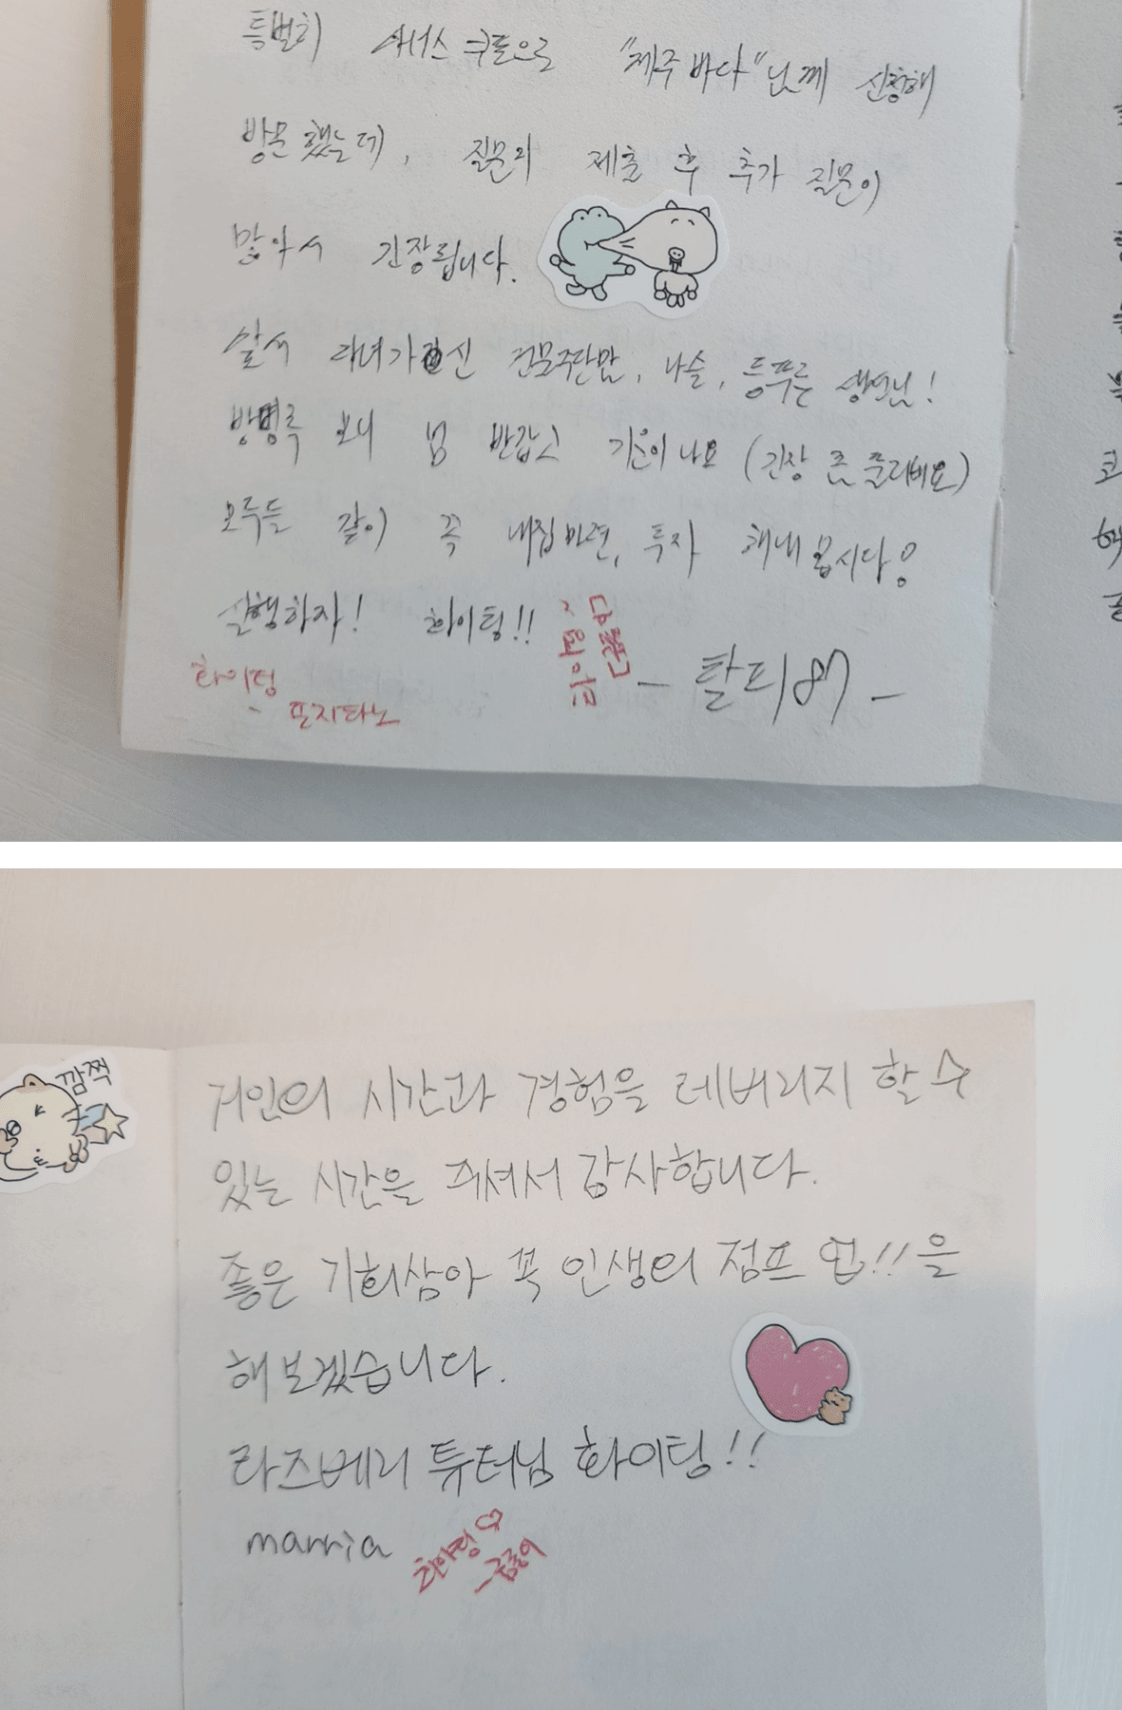 특별히 서비스 쿠폰으로 "제주바다"님께 신청해
방문했는데, 질문지 제출 후 추가 질문이
많아서 긴장됩니다.
앞서 다녀가신 건물주단맘, 나슬, 등푸른 생선님!
방명록 보니 넘 반갑고 기운이 나요 (긴장 좀 풀리네요)
모두들 같이 꼭 내집마련, 투자 해내 봅시다!
실행하자! 화이팅!!
화이팅
포지타노
- 탈티87 -
깜짝
거인의 시간과 경험을 레버리지 할 수
있는 시간을 주셔서 감사합니다.
좋은 기회삼아 꼭 인생의 점프 업!!을
해보겠습니다.
라즈베리 튜터님 화이팅!!
marria
화이팅♡